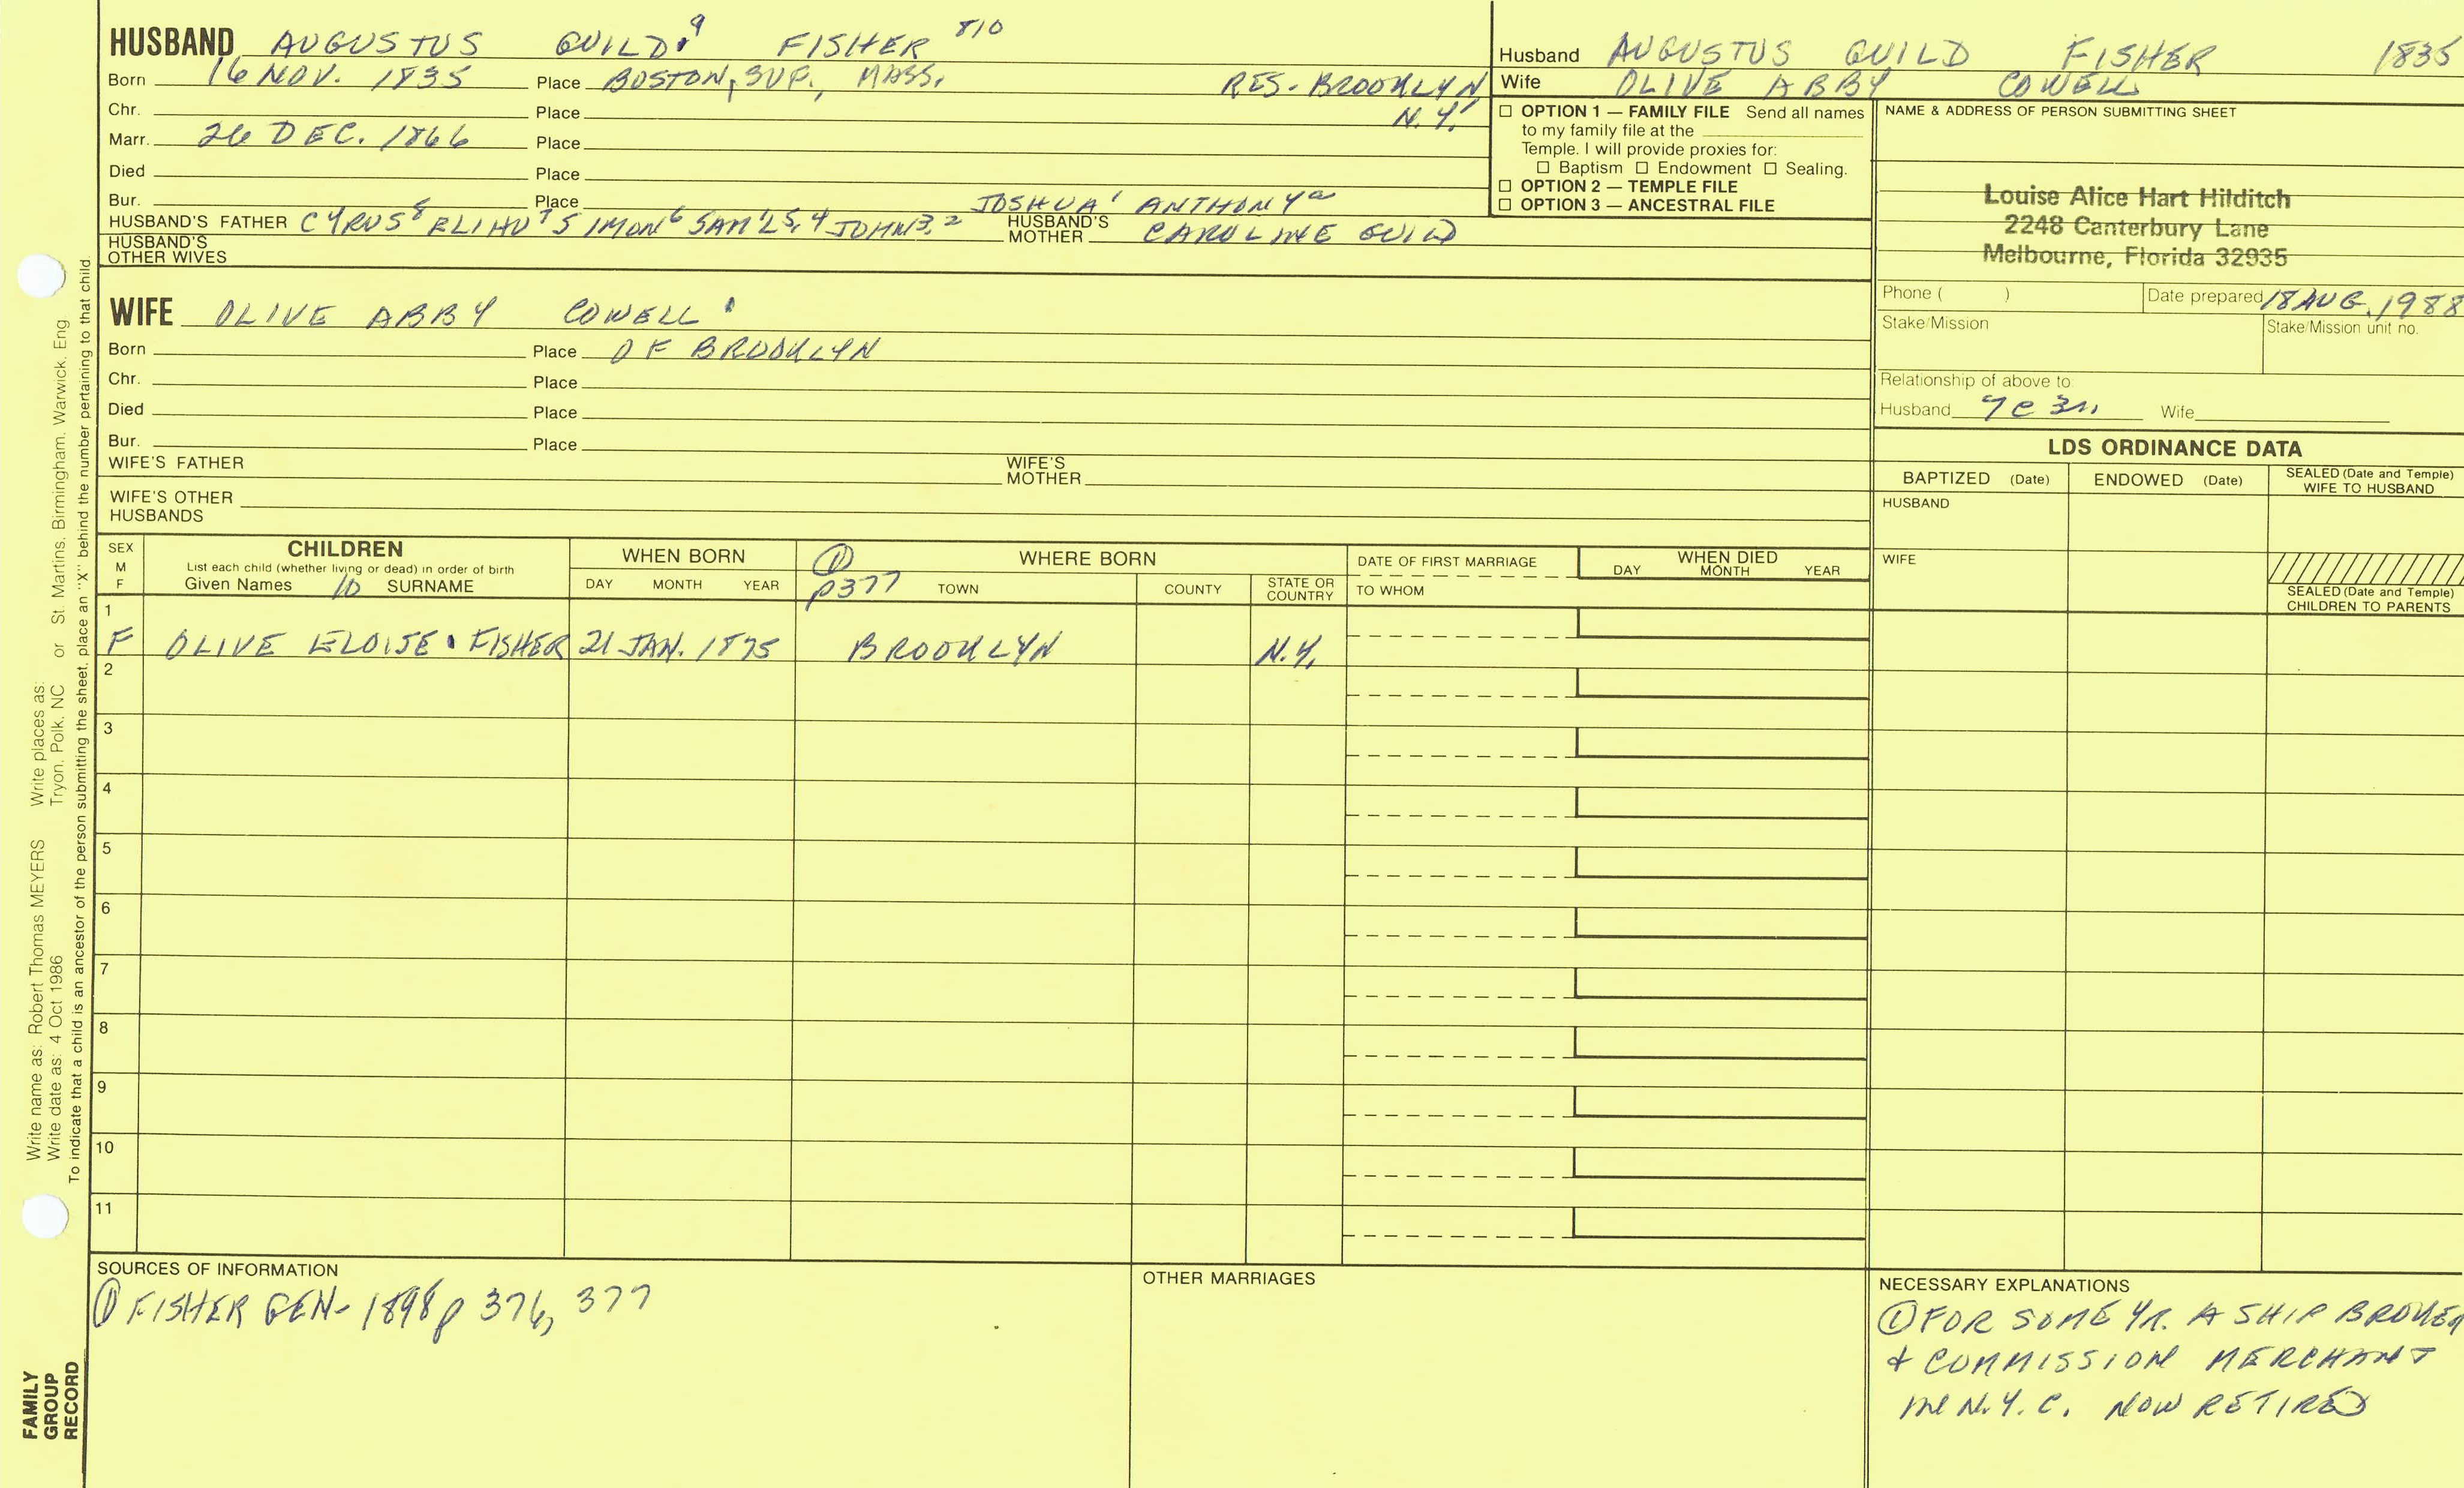 HUSBAND AUGUSTUS GUILD 9 FISHER 810
Born 16 NOV. 1835 Place BOSTON, SUF., MASS. RES- BROOKLYN
Chr. Place N.Y.
Marr. 26 DEC. 1866 Place
Died Place
Bur. Place JOSHUA 1 ANTHONY a
HUSBAND'S FATHER CYRUS 8 ELIHU 7 SIMON 6 SAM'L 5,4 JOHN 3,2 HUSBAND'S MOTHER CAROLINE GUILD
HUSBAND'S
OTHER WIVES
WIFE OLIVE ABBY COWELL
Born Place OF BROOKLYN
Chr. Place
Died Place
Bur. Place
WIFE'S FATHER WIFE'S MOTHER
WIFE'S OTHER
HUSBANDS
Husband AUGUSTUS GUILD FISHER 1835
Wife OLIVE ABBY COWELL
☐ OPTION 1 — FAMILY FILE Send all names
to my family file at the
Temple. I will provide proxies for:
☐ Baptism ☐ Endowment ☐ Sealing.
☐ OPTION 2 — TEMPLE FILE
☐ OPTION 3 — ANCESTRAL FILE
NAME & ADDRESS OF PERSON SUBMITTING SHEET
Louise Alice Hart Hilditch
2248 Canterbury Lane
Melbourne, Florida 32935
Phone ( ) Date prepared 18 AUG. 1988
Stake/Mission Stake/Mission unit no.
Relationship of above to:
Husband Wife
LDS ORDINANCE DATA
BAPTIZED (Date) ENDOWED (Date) SEALED (Date and Temple) WIFE TO HUSBAND
HUSBAND
WIFE
SEALED (Date and Temple)
CHILDREN TO PARENTS
SEX M F
CHILDREN
List each child (whether living or dead) in order of birth
Given Names 10 SURNAME
WHEN BORN
DAY MONTH YEAR
① p377
WHERE BORN
TOWN COUNTY STATE OR COUNTRY
DATE OF FIRST MARRIAGE
TO WHOM
WHEN DIED
DAY MONTH YEAR
1
F OLIVE ELOISE FISHER 21 JAN. 1875 BROOKLYN N.Y.
2
3
4
5
6
7
8
9
10
11
SOURCES OF INFORMATION
① FISHER GEN- 1898 p 376, 377
OTHER MARRIAGES
NECESSARY EXPLANATIONS
① FOR SOME YR. A SHIP BROKER
+ COMMISSION MERCHANT
IN N.Y.C. NOW RETIRED
Write name as: Robert Thomas MEYERS Write places as: Tryon, Polk, NC or St. Martins, Birmingham, Warwick, Eng
Write date as: 4 Oct 1986
To indicate that a child is an ancestor of the person submitting the sheet, place an "X" behind the number pertaining to that child.
FAMILY
GROUP
RECORD